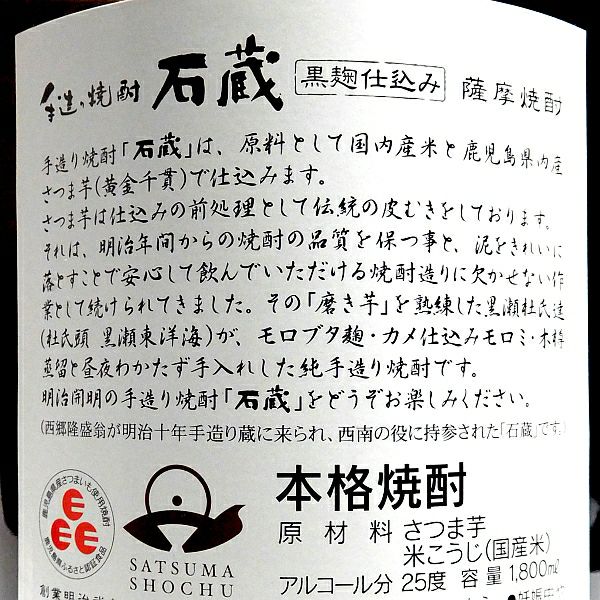 手造り焼酎 石蔵 黒麹仕込み 薩摩焼酎
手造り焼酎「石蔵」は、原料として国内産米と鹿児島県内産
さつま芋(黄金千貫)で仕込みます。
さつま芋は仕込みの前処理として伝統の皮むきをしております。
それは、明治年間からの焼酎の品質を保つ事と、泥をきれいに
落とすことで安心して飲んでいただける焼酎造りに欠かせない作
業として続けられてきました。その「磨き芋」を熟練した黒瀬杜氏達
(杜氏頭 黒瀬東洋海)が、モロブタ麹・カメ仕込みモロミ・木樽
蒸留と昼夜わかたず手入れした純手造り焼酎です。
明治開明の手造り焼酎「石蔵」をどうぞお楽しみください。
(西郷隆盛翁が明治十年手造り蔵に来られ、西南の役に持参された「石蔵」です。)
鹿児島県産さつまいも使用焼酎
鹿児島県ふるさと認証食品
SATSUMA
SHOCHU
本格焼酎
原材料 さつま芋
米こうじ(国産米)
アルコール分 25度 容量 1,800ml
創業明治